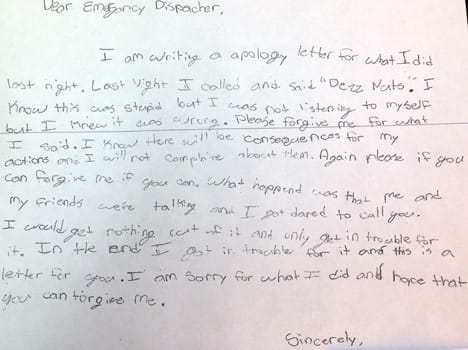 Dear Emergency Dispacher,
I am writing a apology letter for what I did
last night. Last Night I called and said "Dezz Nuts". I
Know this was stupid but I was not listening to myself
but I Knew it was wrong. Please forgive me for what
I said. I know there will be consequences for my
actions and I will not complaine about them. Again please if you
can forgive me if you can. What happend was that me and
my friends were talking and I got dared to call you.
I would get nothing out of it and only get in trouble for
it. In the end I got in trouble for it and this is a
letter for you. I am sorry for what I did and hope that
you can forgive me.
Sincerely,